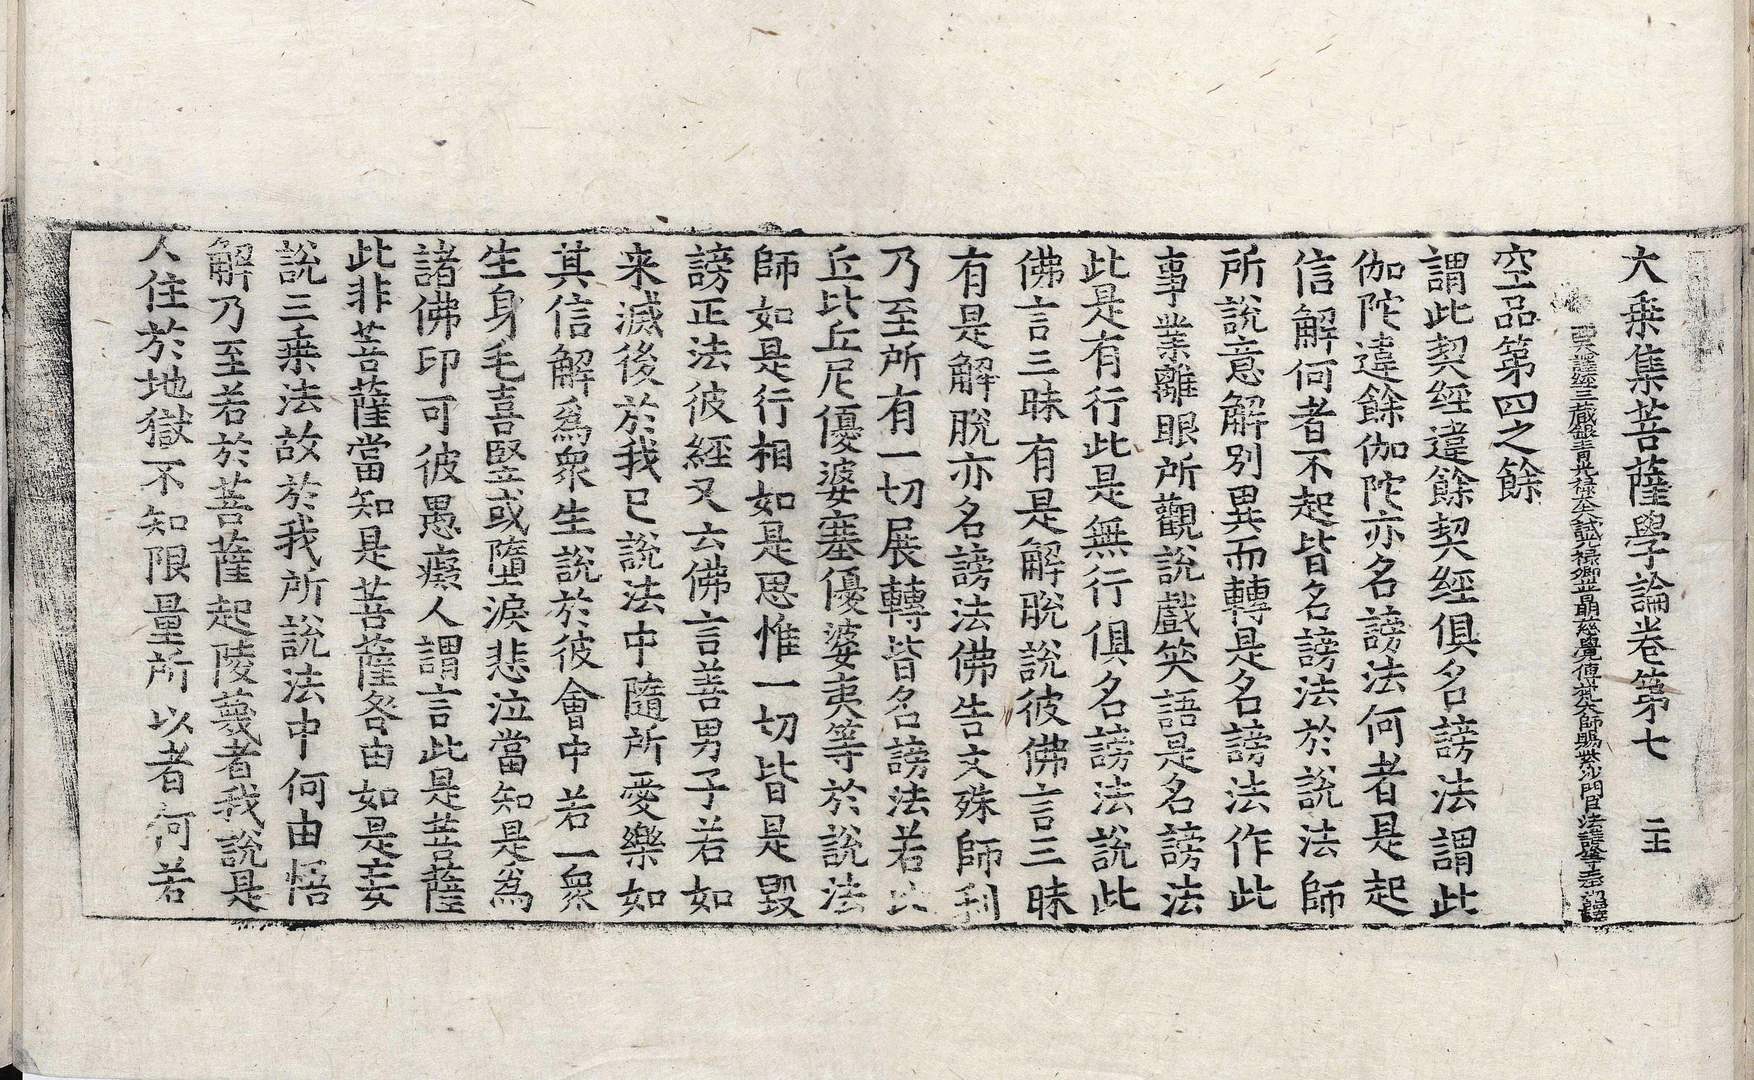 大乗集菩薩學論卷第七 二主
譯經三藏銀青光祿大夫試光祿卿普明慈覺傳梵大師賜紫沙門臣法護等奉 詔譯
空品第四之餘
謂此契經違餘契經俱名謗法謂此
伽陀違餘伽陀亦名謗法何者是起
信解何者不起皆名謗法於說法師
所說意解別異而轉是名謗法作此
事業離眼所觀說戲笑語是名謗法
此是有行此是無行俱名謗法說此
佛言三昧有是解脫說彼佛言三昧
有是解脫亦名謗法佛告文殊師利
乃至所有一切展轉皆名謗法若比
丘比丘尼優婆塞優婆夷等於說法
師如是行相如是思惟一切皆是毀
謗正法彼經又云佛言善男子若如
来滅後於我已說法中隨所愛樂如
其信解爲衆生說於彼會中若一衆
生身毛喜竪或墮淚悲泣當知是爲
諸佛印可彼愚癡人謂言此是菩薩
此非菩薩當知是菩薩咎由如是妄
說三乗法故於我所說法中何由悟
解乃至若於菩薩起陵蔑者我說是
人住於地獄不知限量所以者何若